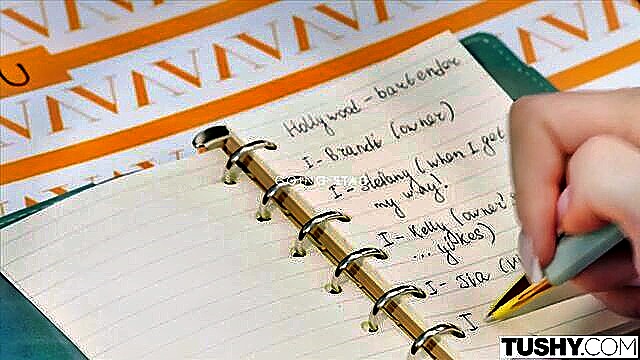 Hollywood - bartender
I - Brandi (owner)
I - Stefany (when I get
my way!
I - Kelly (owner
... yikes)
I - Jia (
I
TUSHY.COM